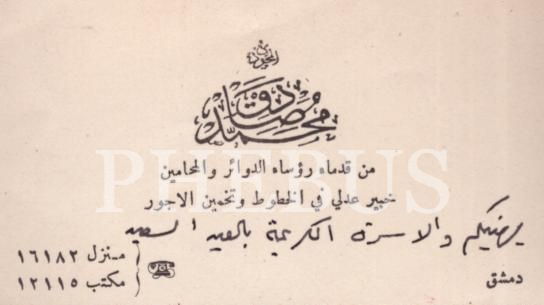 المحمودي
محمد صادق
من قدماء رؤساء الدوائر والمحامين
خبير عدلي في الخطوط وتخمين الاجور
يهنيكم والاسرة الكريمة بالعيد السعيد
منزل ١٦١٨٢
مكتب ١٢١١٥
دمشق
PHEBUS